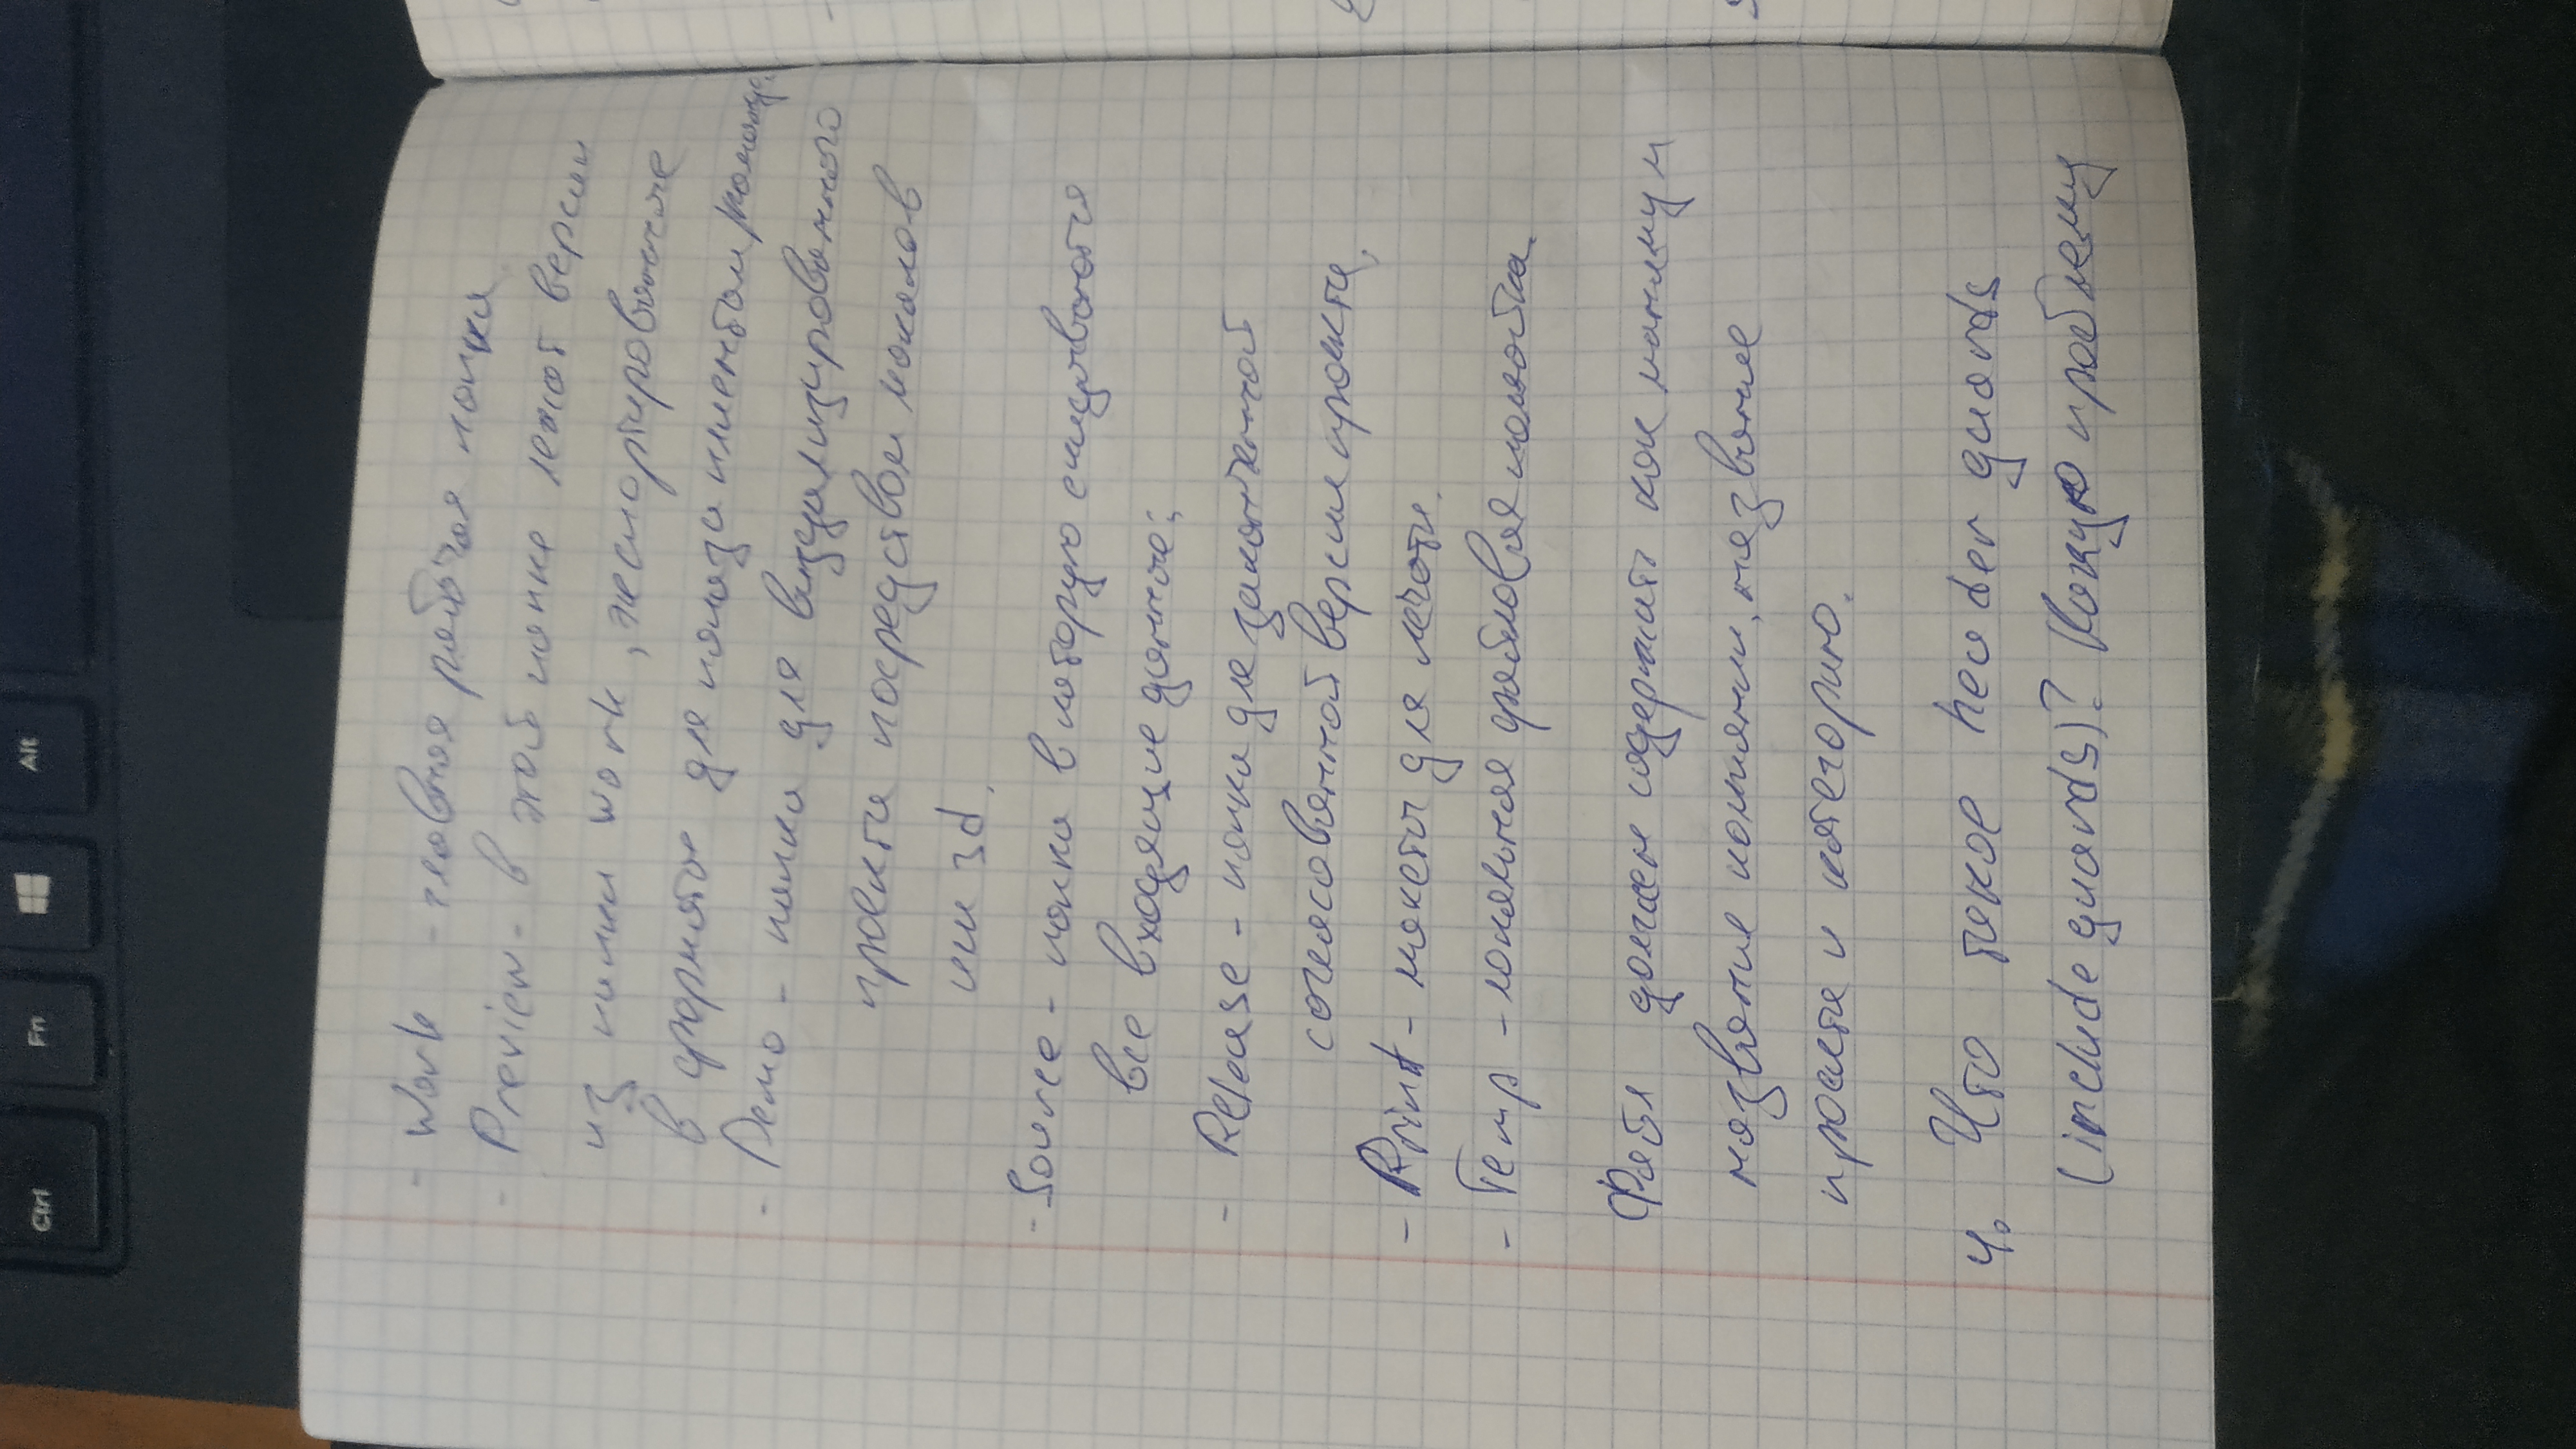 Ctrl Fn Alt
- Work - главная рабочая папка
- Preview - в этой папке лежат версии
из папки work, экспортированные
в формате для показа клиентам/
- Демо - папка для визуализированного
проекта посредством мокапов
или 3d.
- Source - папка в которую скидываются
все входящие данные;
- Release - папка для законченной
согласованной версии проекта,
- Print - макеты для печати.
- Temp - локальная файловая помойка.
Файл должен содержать как минимум
название компании, название
проекта и категорию.
4. Что такое header guards
(include guards)? Какую проблему